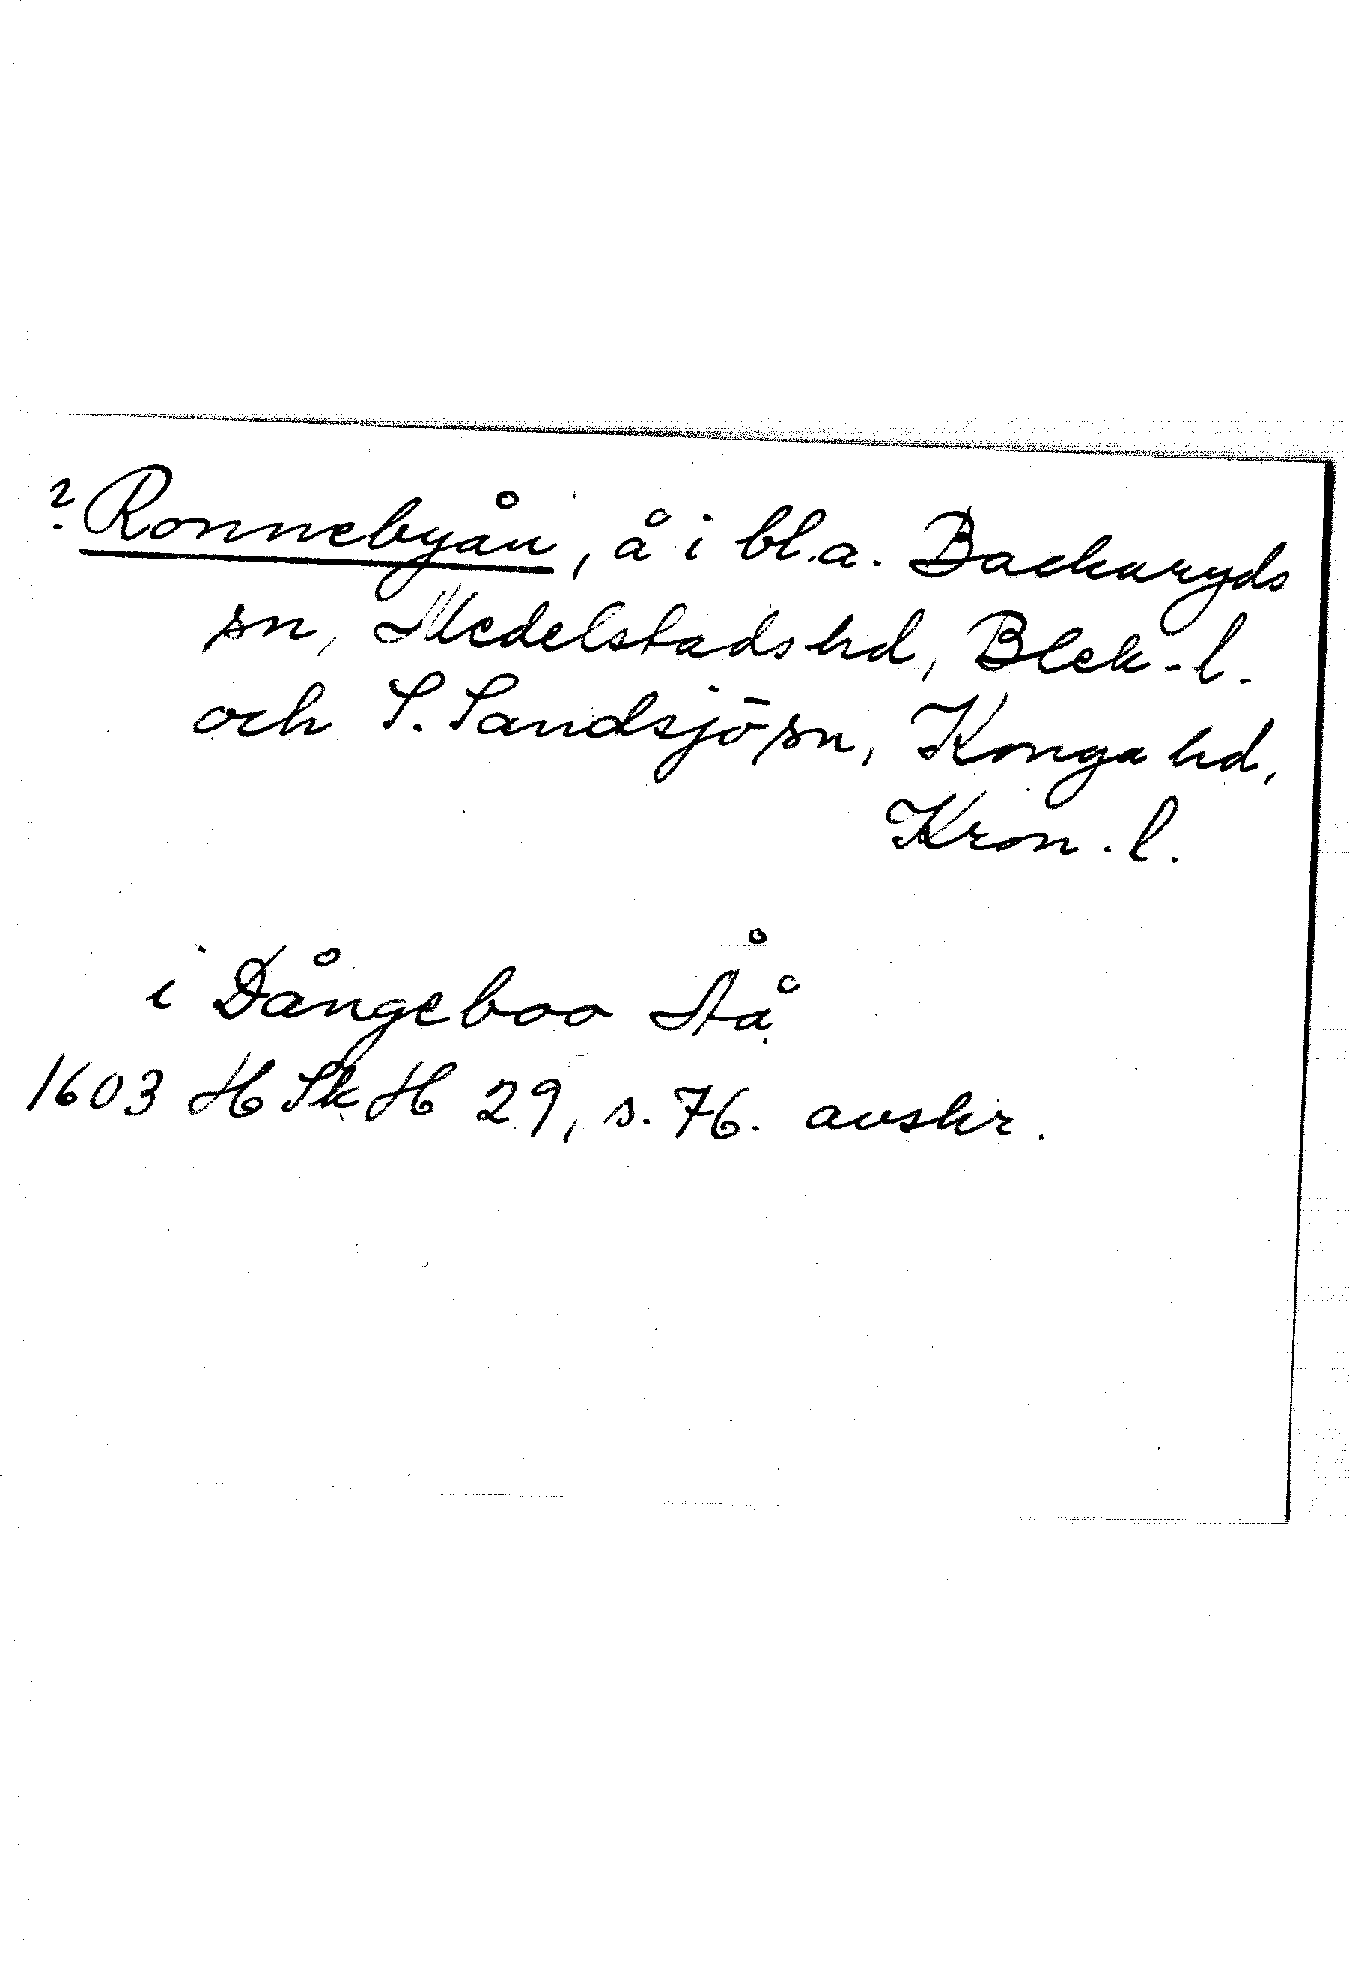 ? Ronnebyån, å i bl.a. Backaryds
sn, Medelstads hd, Blek. l.
och S. Sandsjö sn, Konga hd,
Kron. l.
i Dångeboo Åå
1603 HSkH 29, s. 76. avskr.